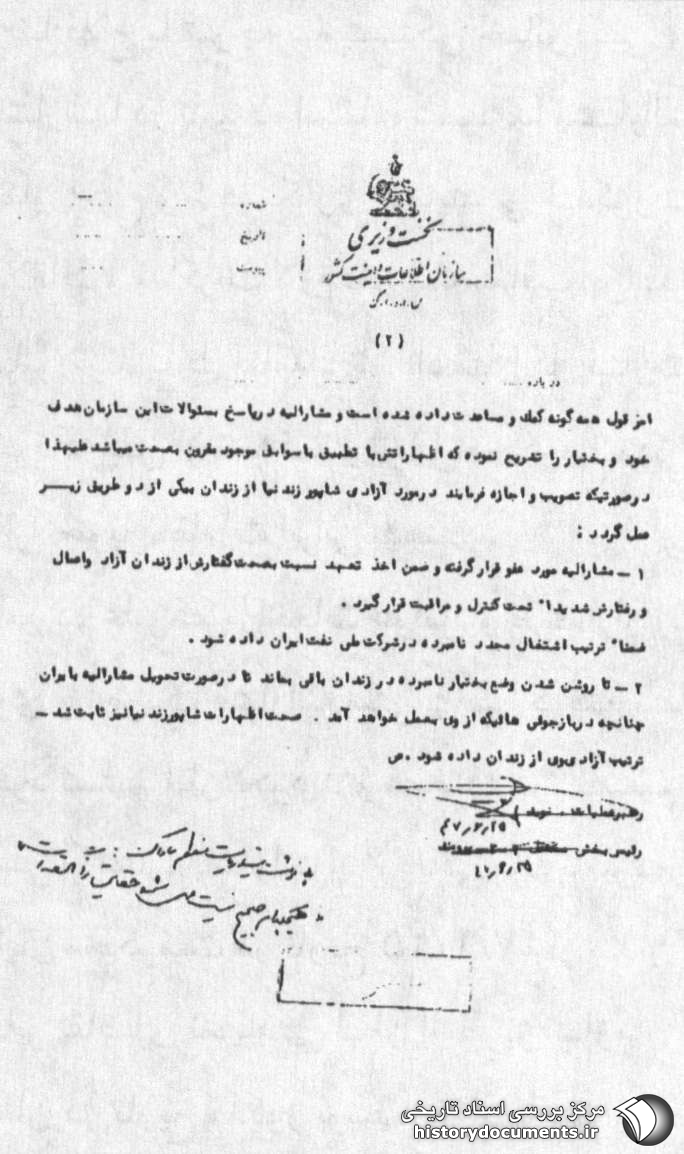 نخست وزیری
سازمان اطلاعات و امنیت کشور
س.ا.و.ا.ک
شماره
تاریخ
پیوست
(۲)
درباره
امز قول همه گونه کمك و مساعدت داده شده است و مشارالیه در پاسخ بسئوالات این سازمان هدف
خود و بختیار را تشریح نموده که اظهاراتش با تطبیق با سوابق موجود مقرون بصحت میباشد علیهذا
در صورتیکه تصویب و اجازه فرمایند در مورد آزادی شاپور زندنیا از زندان بیکی از دو طریق زیر
عمل گردد :
۱ ـ مشارالیه مورد عفو قرار گرفته و ضمن اخذ تعهد نسبت بصحت گفتارش از زندان آزاد و اعمال
و رفتارش شدیداً تحت کنترل و مراقبت قرار گیرد .
ضمناً ترتیب اشتغال مجدد نامبرده در شرکت ملی نفت ایران داده شود .
۲ ـ تا روشن شدن وضع بختیار نامبرده در زندان باقی بماند تا در صورت تحویل مشارالیه بایران
چنانچه در بازجوئی هائیکه از وی بعمل خواهد آمد . صحت اظهارات شاپور زندنیا نیز ثابت شد ـ
ترتیب آزادی وی از زندان داده شود .ص
رهبر عملیات نوید
۴۷٫۳٫۲۵
رئیس بخش
مرکز بررسی اسناد تاریخی
historydocuments.ir